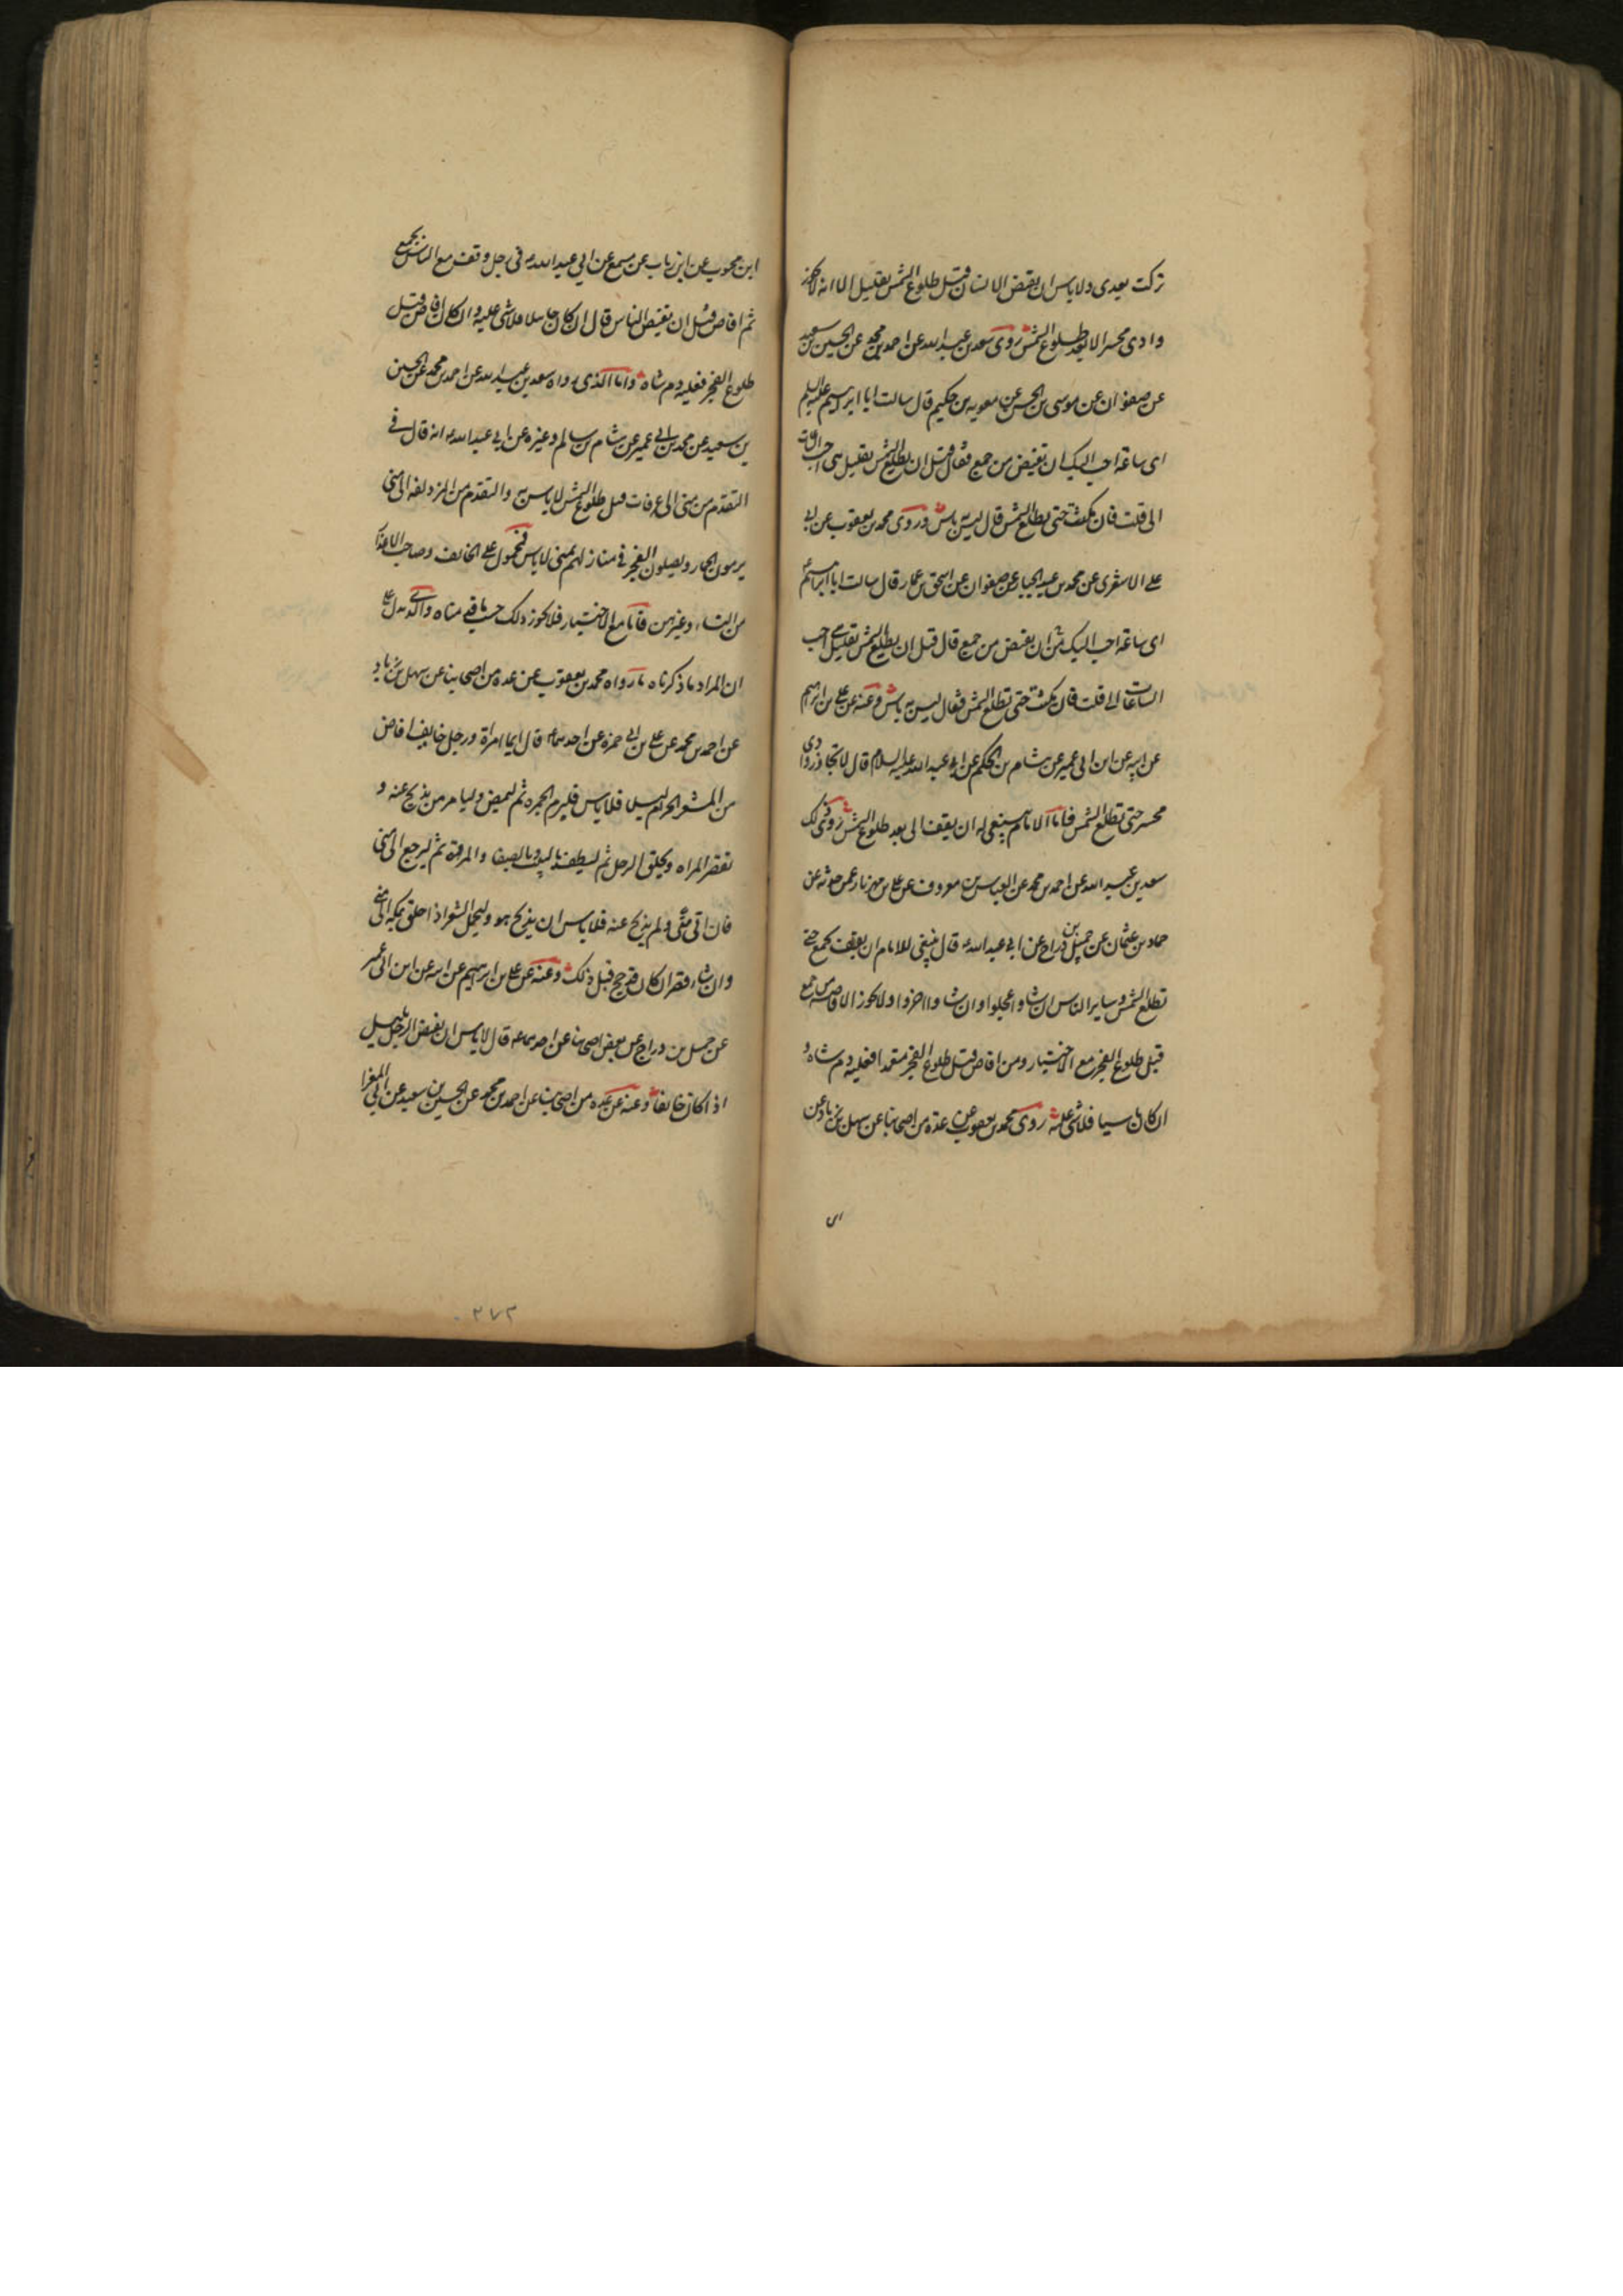 تركت بعدى ولا باس ان يفيض الانسان قبل طلوع الشمس بقليل الا انه لا يجوز
وادى محسر الا بعد طلوع الشمس روى سعد بن عبد الله عن احمد بن محمد عن الحسين بن سعيد
عن صفوان عن موسى بن الحسن عن معوية بن حكيم قال سالت ابا ابرهيم عليه السلم
اى ساعة احب اليك ان تفيض من جمع فقال قبل ان تطلع الشمس بقليل هى احب الساعات
الى قلت فان مكثت حتى تطلع الشمس قال ليس به باس وروى محمد بن يعقوب عن ابى
على الاشعرى عن محمد بن عبد الجبار عن صفوان عن اسحق بن عمار قال سالت ابا ابراهيم ع
اى ساعة احب اليك ان نفيض من جمع قال قبل ان تطلع الشمس بقليل هى احب
الساعات الى قلت فان مكثت حتى تطلع الشمس فقال ليس به باس وعنه عن على بن ابرهيم
عن ابيه عن ابن ابى عمير عن هشام بن الحكم عن ابى عبد الله عليه السلام قال لا تجاوز وادى
محسر حتى تطلع الشمس فاما الامام ينبغى له ان يقف الى بعد طلوع الشمس روى ذلك
سعد بن عبد الله عن احمد بن محمد عن العباس بن معروف عن على بن مهزيار عمن حدثه عن
حماد بن عثمان عن جميل بن دراج عن ابى عبد الله ع قال ينبغى للامام ان يقف بجمع حتى
تطلع الشمس وساير الناس ان شاوا عجلوا وان شاوا اخروا ولا يجوز الافاضه من جمع
قبل طلوع الفجر مع الاختيار ومن افاض قبل طلوع الفجر متعمدا فعليه دم شاه و
ان كان ناسيا فلا شى عليه روى محمد بن يعقوب عن عدة من اصحابنا عن سهل بن زياد عن
ابن محبوب عن ابن رياب عن مسمع عن ابى عبد الله ع فى رجل وقف مع الناس بجمع
ثم افاض قبل ان يفيض الناس قال ان كان جاهلا فلا شى عليه وان كان افاض قبل
طلوع الفجر فعليه دم شاه واما الذى رواه سعد بن عبد الله عن احمد بن محمد عن الحسين
بن سعيد عن محمد بن ابى عمير عن هشام بن سالم وغيره عن ابى عبد الله ع انه قال فى
التقدم من منى الى عرفات قبل طلوع الشمس لا باس به والتقدم من المزدلفه الى منى
يرمون الجمار ويصلون الفجر فى منازلهم بمنى لا باس فمحمول على الخايف وصاحب الاعذار
من النساء وغيرهن فاما مع الاختيار فلا يجوز ذلك حسب ما قدمناه والذى يدل على
ان المراد ما ذكرناه ما رواه محمد بن يعقوب عن عده من اصحابنا عن سهل بن زياد
عن احمد بن محمد عن على بن ابى حمزه عن احدهما ع قال ايما امراة ورجل خايف افاض
من المشعر الحرام ليلا فلا باس فليرم الجمره ثم ليمض وليامر من يذبح عنه و
تقصر المراه ويحلق الرجل ثم ليطف بالبيت وبالصفا والمروة ثم ليرجع الى منى
فان اتى منى ولم يذبح عنه فلا باس ان يذبح هو وليحمل الشعر اذا حلق بمكه الى منى
وان شاء قصر ان كان قد حج قبل ذلك وعنه عن على بن ابرهيم عن ابيه عن ابن ابى عمير
عن جميل بن دراج عن بعض اصحابنا عن احدهما ع قال لا باس ان يفيض الرجل بليل
اذا كان خايفا وعنه عن عده من اصحابنا عن احمد بن محمد عن الحسين بن سعيد عن ابى المغرا
ابن
٢٧٣